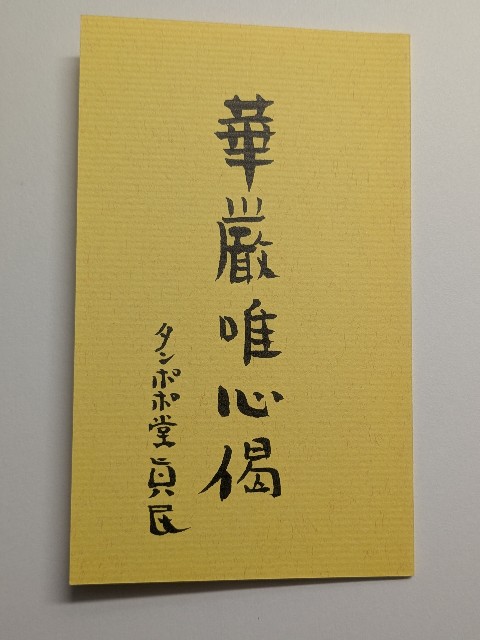 華厳唯心偈
タンポポ堂真民